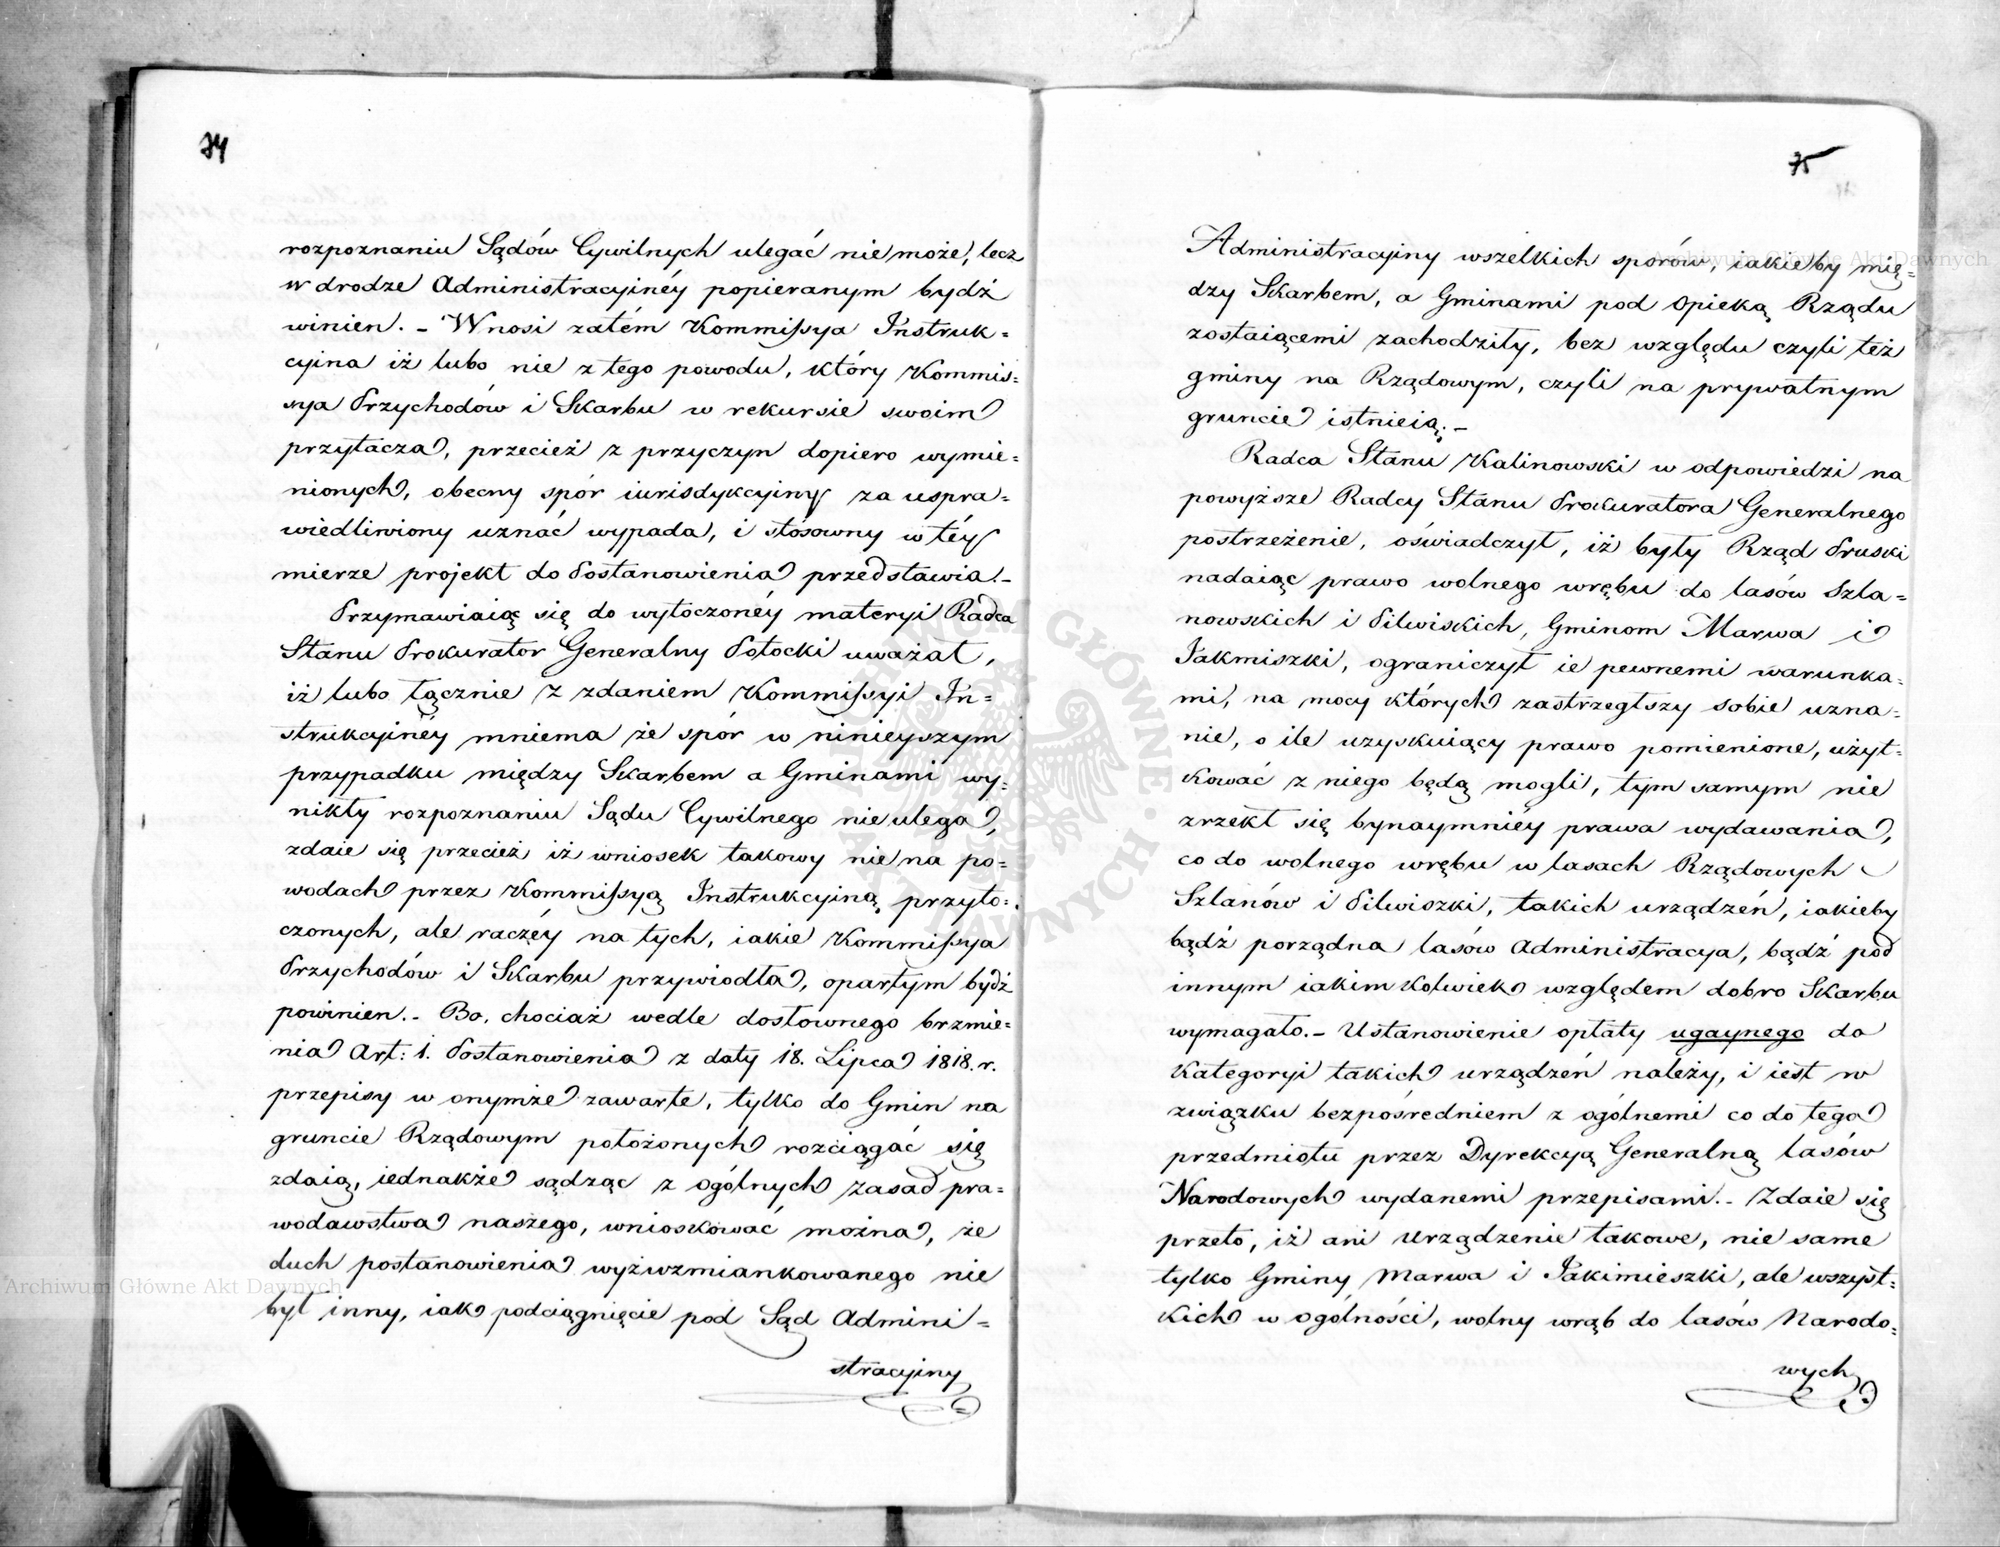 74
rozpoznaniu Sądów Cywilnych ulegać nie może, lecz
w drodze Administracyinéy popieranym bydź
winien. - Wnosi zatém Kommissya Instruk=
cyina iż lubo nie z tego powodu, który Kommis=
sya Przychodów i Skarbu w rekursie swoim
przytacza, przecież z przyczyn dopiero wymie=
nionych, obecny spór iurisdykcyiny za uspra=
wiedliwiony uznać wypada, i stósowny w téy
mierze projekt do Postanowienia przedstawia. -
Przymawiaiąc się do wytoczonéy materyi Radca
Stanu Prokurator Generalny Potocki uważał,
iż lubo łącznie z zdaniem Kommissyi In=
strukcyinéy mniema że spór w ninieyszym
przypadku między Skarbem a Gminami wy=
nikły rozpoznaniu Sądu Cywilnego nie ulega,
zdaie się przecież iż wniosek takowy nie na po=
wodach przez Kommissyą Instrukcyiną przyto=
czonych, ale raczéy na tych, iakie Kommissya
Przychodów i Skarbu przywiodła, opartym bydź
powinien. - Bo, chociaż wedle dosłownego brzmie=
nia Art: 1. Postanowienia z daty 18. Lipca 1818. r.
przepisy w onymże zawarte, tylko do Gmin na
gruncie Rządowym położonych rozciągać się
zdaią, iednakże sądząc z ogólnych zasad pra=
wodawstwa naszego, wnioskować można, że
duch postanowienia wyżwzmiankowanego nie
był inny, iak podciągnięcie pod Sąd Admini=
stracyiny
75
Administracyiny wszelkich sporów, iakieby mię=
dzy Skarbem, a Gminami pod Opieką Rządu
zostaiącemi zachodziły, bez względu czyli też
gminy na Rządowym, czyli na prywatnym
gruncie istnieią. -
Radca Stanu Kalinowski w odpowiedzi na
powyższe Radcy Stanu Prokuratora Generalnego
postrzeżenie, oświadczył, iż były Rząd Pruski
nadaiąc prawo wolnego wrębu do lasów Szla=
nowskich i Pilwiskich, Gminom Marwa i
Jakmiszki, ograniczył ie pewnemi warunka=
mi, na mocy których zastrzegłszy sobie uzna=
nie, o ile uzyskuiący prawo pomienione, użyt=
kować z niego będą mogli, tym samym nie
zrzekł się bynaymniéy prawa wydawania,
co do wolnego wrębu w lasach Rządowych
Szlanów i Pilwiszki, takich urządzeń, iakieby
bądź porządna lasów Administracya, bądź pod
innym iakimkolwiek względem dobro Skarbu
wymagało. - Ustanowienie opłaty ugaynego do
Kategoryi takich urządzeń należy, i iest w
związku bezpośredniem z ogólnemi co do tego
przedmiotu przez Dyrekcyą Generalną lasów
Narodowych wydanemi przepisami. - Zdaie się
przeto, iż ani urządzenie takowe, nie same
tylko Gminy Marwa i Jakimieszki, ale wszyst=
kich w ogólności, wolny wrąb do lasów Narodo=
wych
Archiwum Główne Akt Dawnych
Archiwum Główne Akt Dawnych